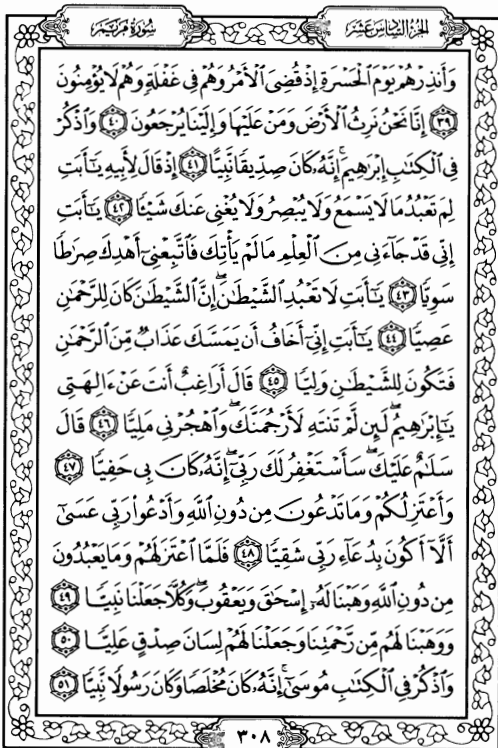 سُورَةُ مَرۡيَمَ
الجُزءُ السَّادِسَ عَشَرَ
وَأَنذِرۡهُمۡ يَوۡمَ ٱلۡحَسۡرَةِ إِذۡ قُضِيَ ٱلۡأَمۡرُ وَهُمۡ فِي غَفۡلَةٖ وَهُمۡ لَا يُؤۡمِنُونَ
٣٩ إِنَّا نَحۡنُ نَرِثُ ٱلۡأَرۡضَ وَمَنۡ عَلَيۡهَا وَإِلَيۡنَا يُرۡجَعُونَ ٤٠ وَٱذۡكُرۡ
فِي ٱلۡكِتَٰبِ إِبۡرَٰهِيمَۚ إِنَّهُۥ كَانَ صِدِّيقٗا نَّبِيًّا ٤١ إِذۡ قَالَ لِأَبِيهِ يَٰٓأَبَتِ
لِمَ تَعۡبُدُ مَا لَا يَسۡمَعُ وَلَا يُبۡصِرُ وَلَا يُغۡنِي عَنكَ شَيۡـٔٗا ٤٢ يَٰٓأَبَتِ
إِنِّي قَدۡ جَآءَنِي مِنَ ٱلۡعِلۡمِ مَا لَمۡ يَأۡتِكَ فَٱتَّبِعۡنِيٓ أَهۡدِكَ صِرَٰطٗا
سَوِيّٗا ٤٣ يَٰٓأَبَتِ لَا تَعۡبُدِ ٱلشَّيۡطَٰنَۖ إِنَّ ٱلشَّيۡطَٰنَ كَانَ لِلرَّحۡمَٰنِ
عَصِيّٗا ٤٤ يَٰٓأَبَتِ إِنِّيٓ أَخَافُ أَن يَمَسَّكَ عَذَابٞ مِّنَ ٱلرَّحۡمَٰنِ
فَتَكُونَ لِلشَّيۡطَٰنِ وَلِيّٗا ٤٥ قَالَ أَرَاغِبٌ أَنتَ عَنۡ ءَالِهَتِي
يَٰٓإِبۡرَٰهِيمُۖ لَئِن لَّمۡ تَنتَهِ لَأَرۡجُمَنَّكَۖ وَٱهۡجُرۡنِي مَلِيّٗا ٤٦ قَالَ
سَلَٰمٌ عَلَيۡكَۖ سَأَسۡتَغۡفِرُ لَكَ رَبِّيٓۖ إِنَّهُۥ كَانَ بِي حَفِيّٗا ٤٧
وَأَعۡتَزِلُكُمۡ وَمَا تَدۡعُونَ مِن دُونِ ٱللَّهِ وَأَدۡعُواْ رَبِّي عَسَىٰٓ
أَلَّآ أَكُونَ بِدُعَآءِ رَبِّي شَقِيّٗا ٤٨ فَلَمَّا ٱعۡتَزَلَهُمۡ وَمَا يَعۡبُدُونَ
مِن دُونِ ٱللَّهِ وَهَبۡنَا لَهُۥٓ إِسۡحَٰقَ وَيَعۡقُوبَۖ وَكُلّٗا جَعَلۡنَا نَبِيّٗا ٤٩
وَوَهَبۡنَا لَهُم مِّن رَّحۡمَتِنَا وَجَعَلۡنَا لَهُمۡ لِسَانَ صِدۡقٍ عَلِيّٗا ٥٠
وَٱذۡكُرۡ فِي ٱلۡكِتَٰبِ مُوسَىٰٓۚ إِنَّهُۥ كَانَ مُخۡلَصٗا وَكَانَ رَسُولٗا نَّبِيّٗا ٥١
٣٠٨